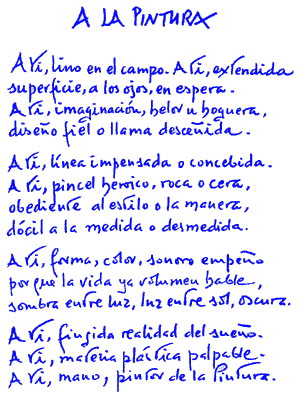 A LA PINTURA
A ti, lino en el campo. A ti, extendida
superficie, a los ojos, en espera.
A ti, imaginación, helor u hoguera,
diseño fiel o llama desceñida.
A ti, línea impensada o concebida.
A ti, pincel heroico, roca o cera,
obediente al estilo o la manera,
dócil a la medida o desmedida.
A ti, forma; color, sonoro empeño
porque la vida ya volumen hable,
sombra entre luz, luz entre sol, oscura.
A ti, fingida realidad del sueño.
A ti, materia plástica palpable.
A ti, mano, pintor de la Pintura.